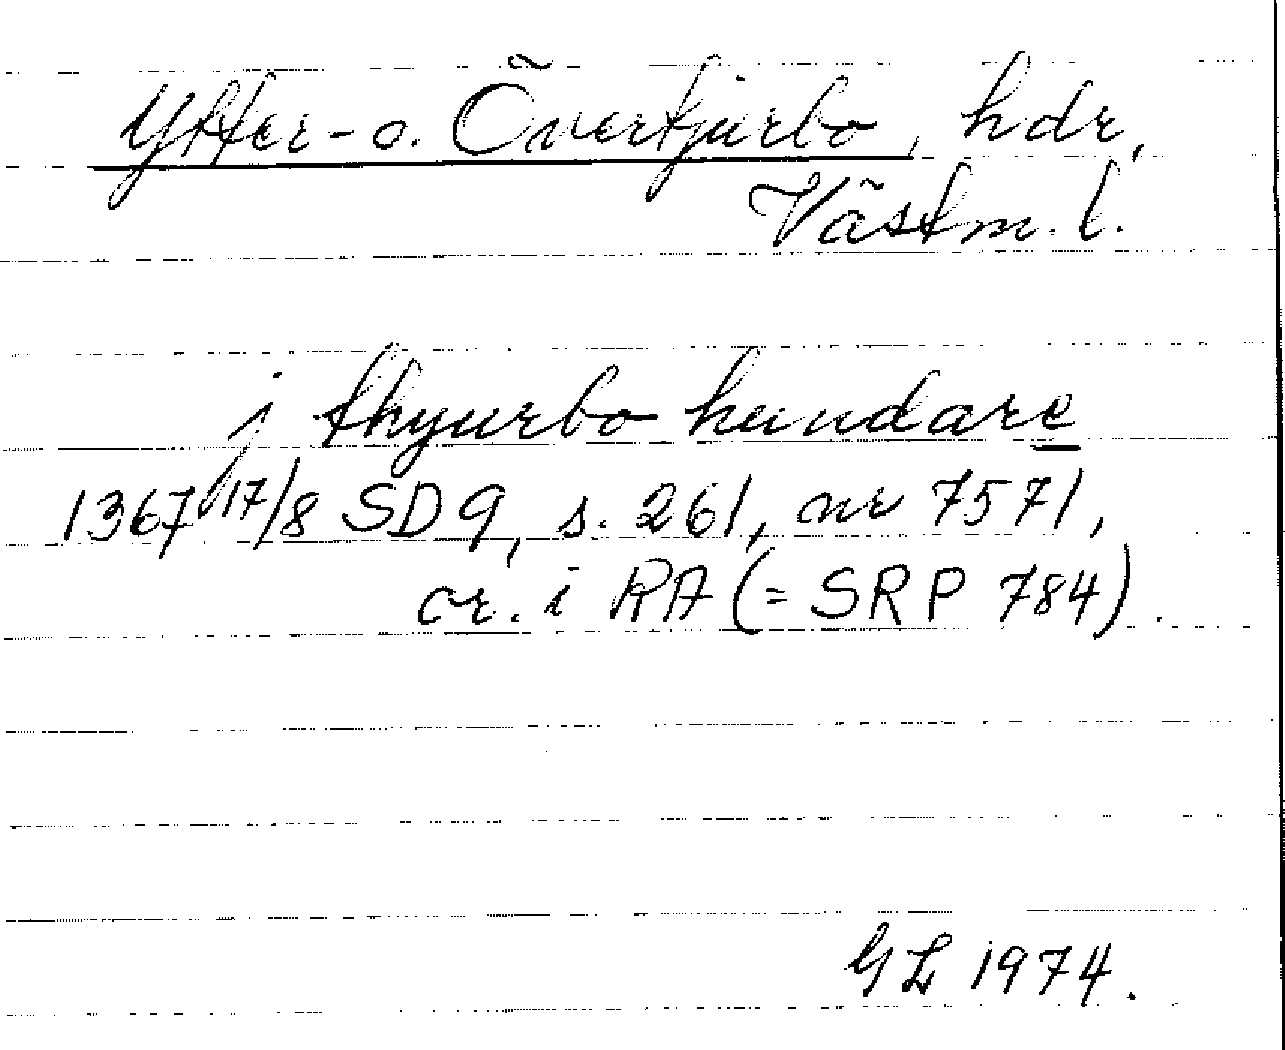 Ytter- o. Övertjurbo, hdr,
Västm. l.
j thyurbo hundare
1367 17/8 SD 9, s. 261, nr 7571,
or. i RA (= SRP 784).
GL 1974.